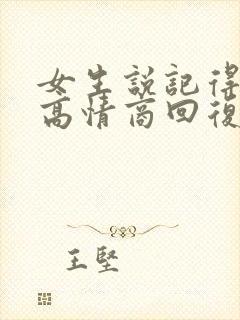 女生説記得
高情商回復
王堅